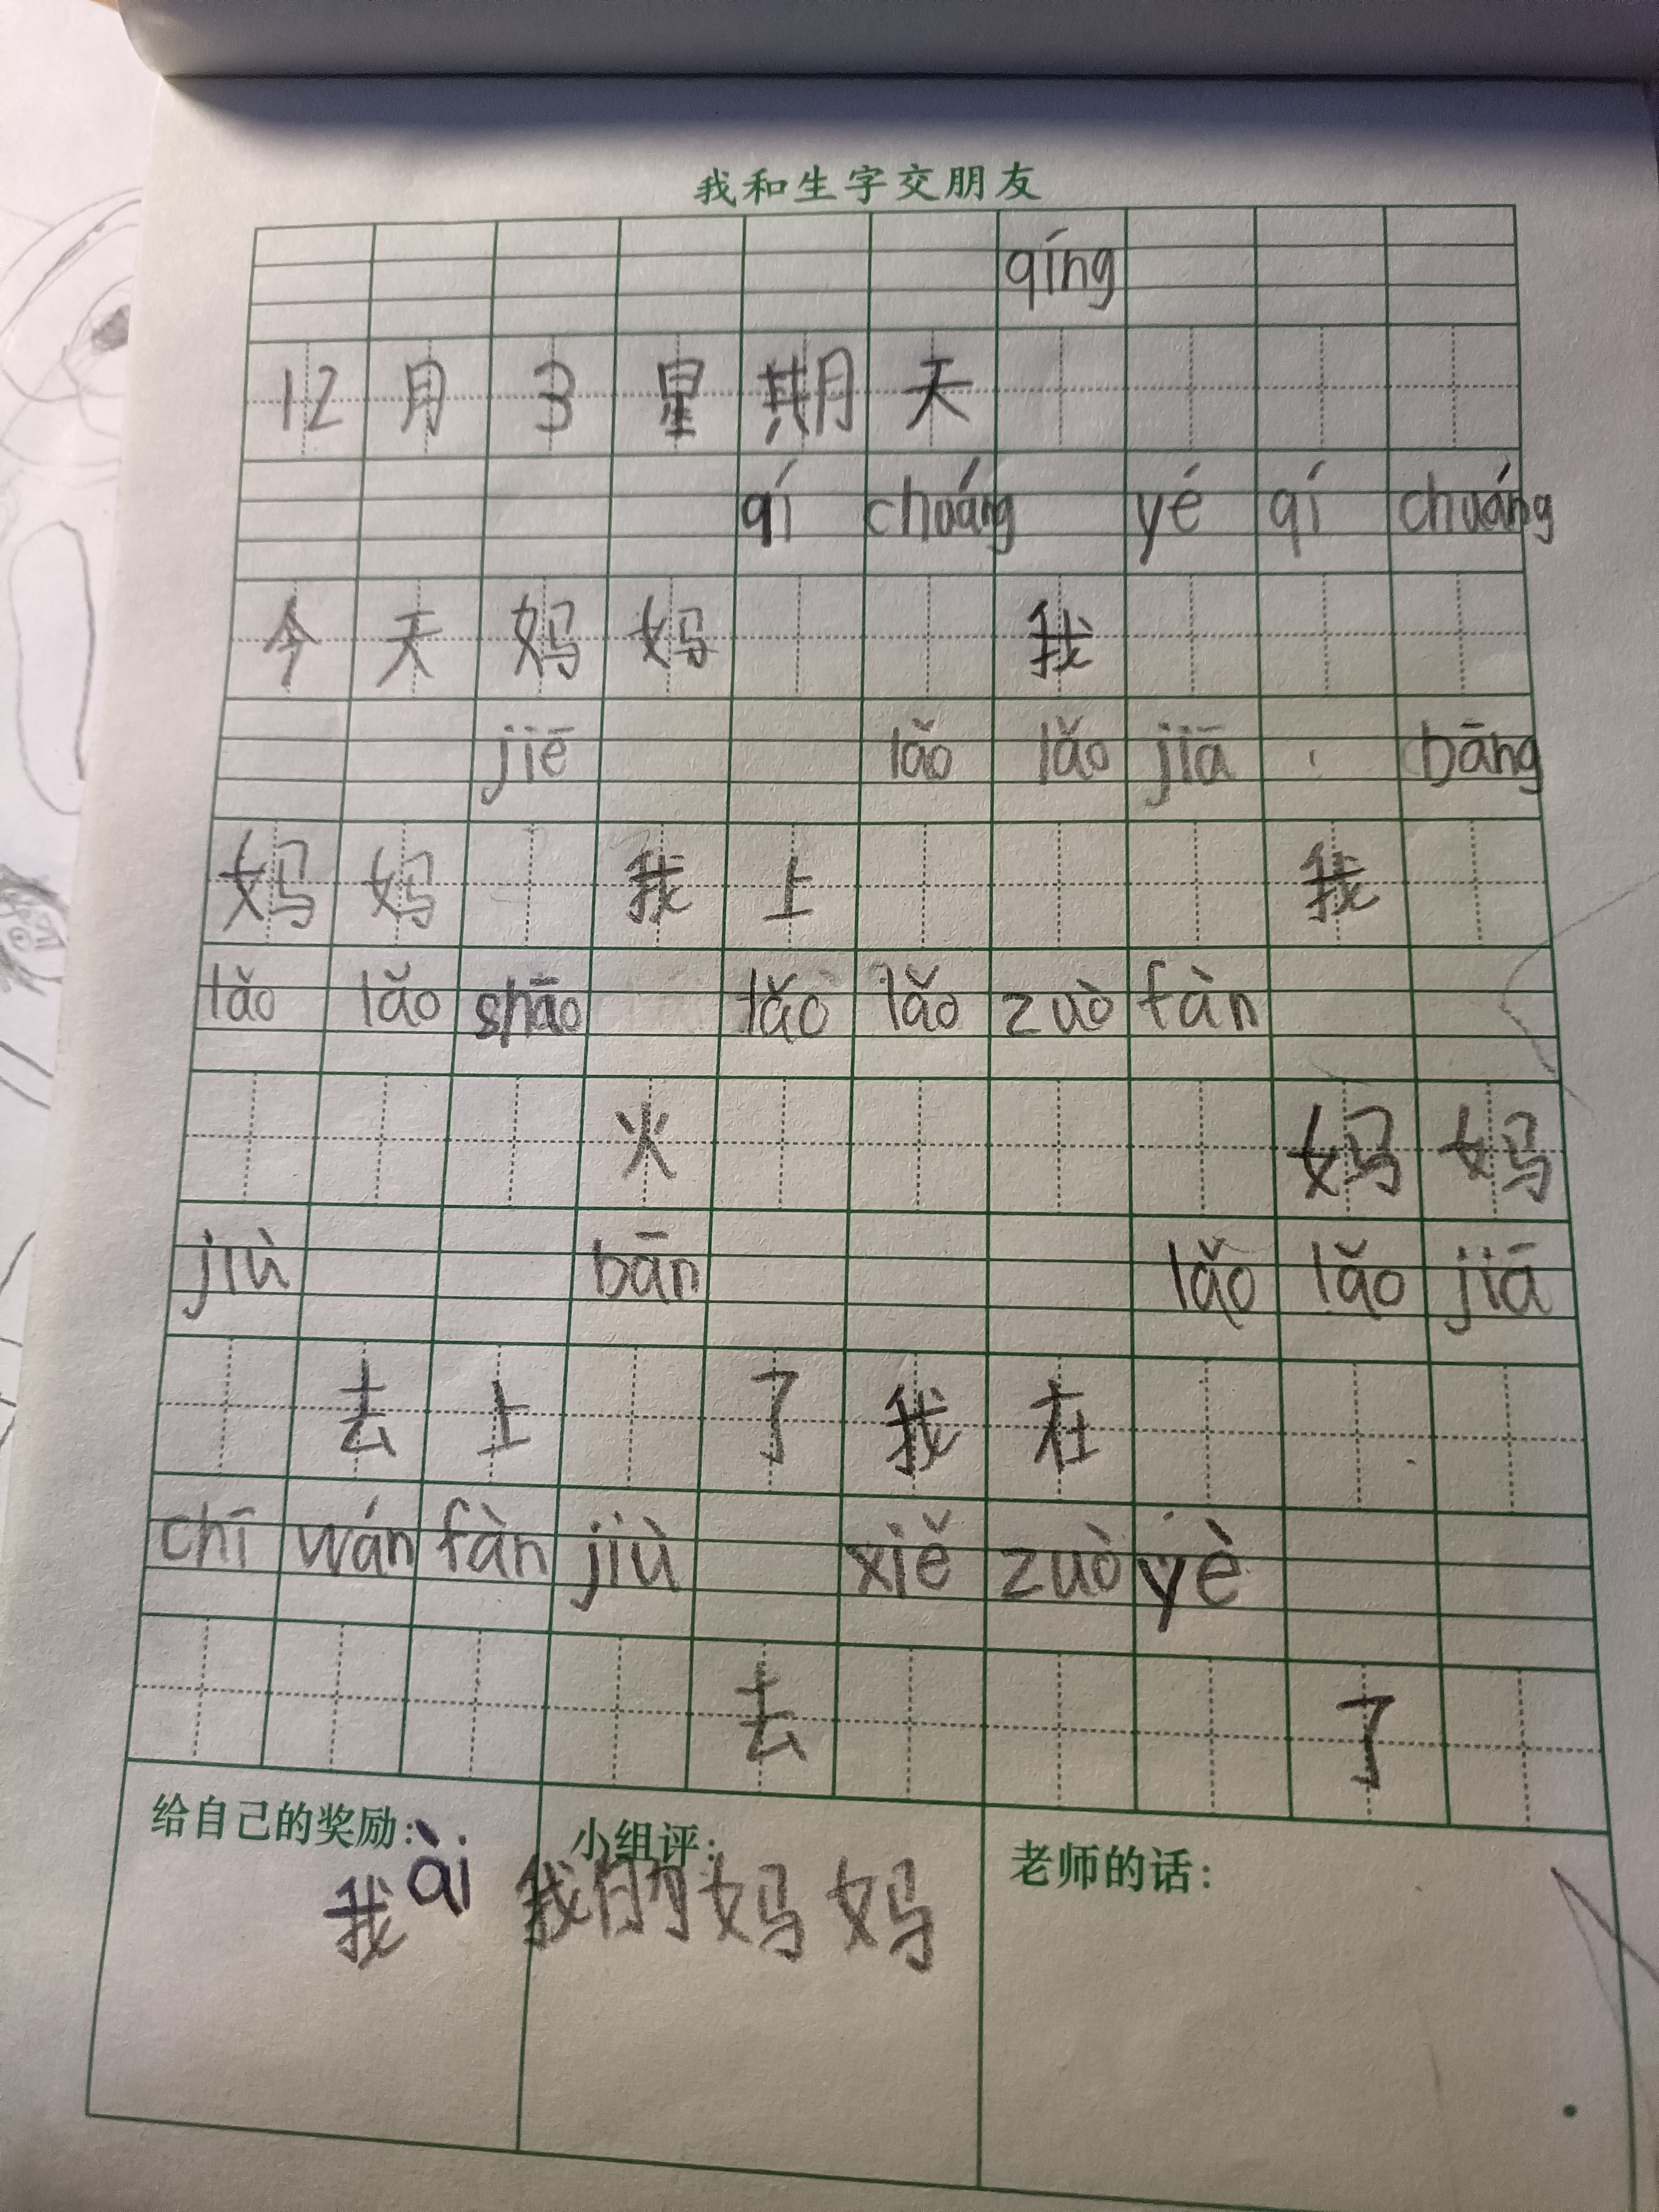 我和生字交朋友
qíng
12月3星期天
qí chuáng yé qí chuáng
今天妈妈 我
jiē lǎo lǎo jiā bāng
妈妈 我上 我
lǎo lǎo shāo lǎo lǎo zuò fàn
火 妈妈
jiù bān lǎo lǎo jiā
去上 了我在
chī wán fàn jiù xiě zuò yè
去 了
给自己的奖励: 小组评: 老师的话:
我ài我的妈妈